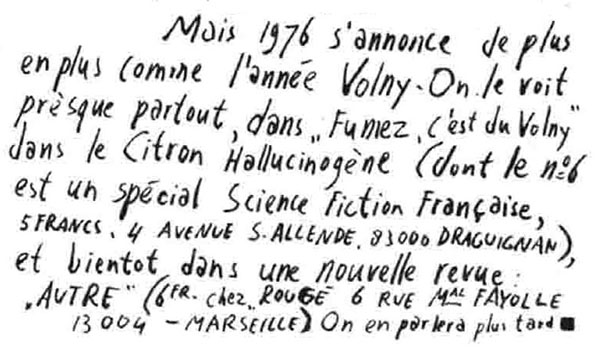 Mais 1976 s'annonce de plus
en plus comme l'année Volny. On le voit
prèsque partout, dans „Fumez, c'est du Volny"
dans le Citron Hallucinogène (dont le n°6
est un spécial Science Fiction Française,
5 FRANCS, 4 AVENUE S. ALLENDE, 83000 DRAGUIGNAN),
et bientot dans une nouvelle revue :
„AUTRE" (6 FR. chez „ROUGE 6 RUE Mal FAYOLLE
13004 – MARSEILLE) On en parlera plus tard ■